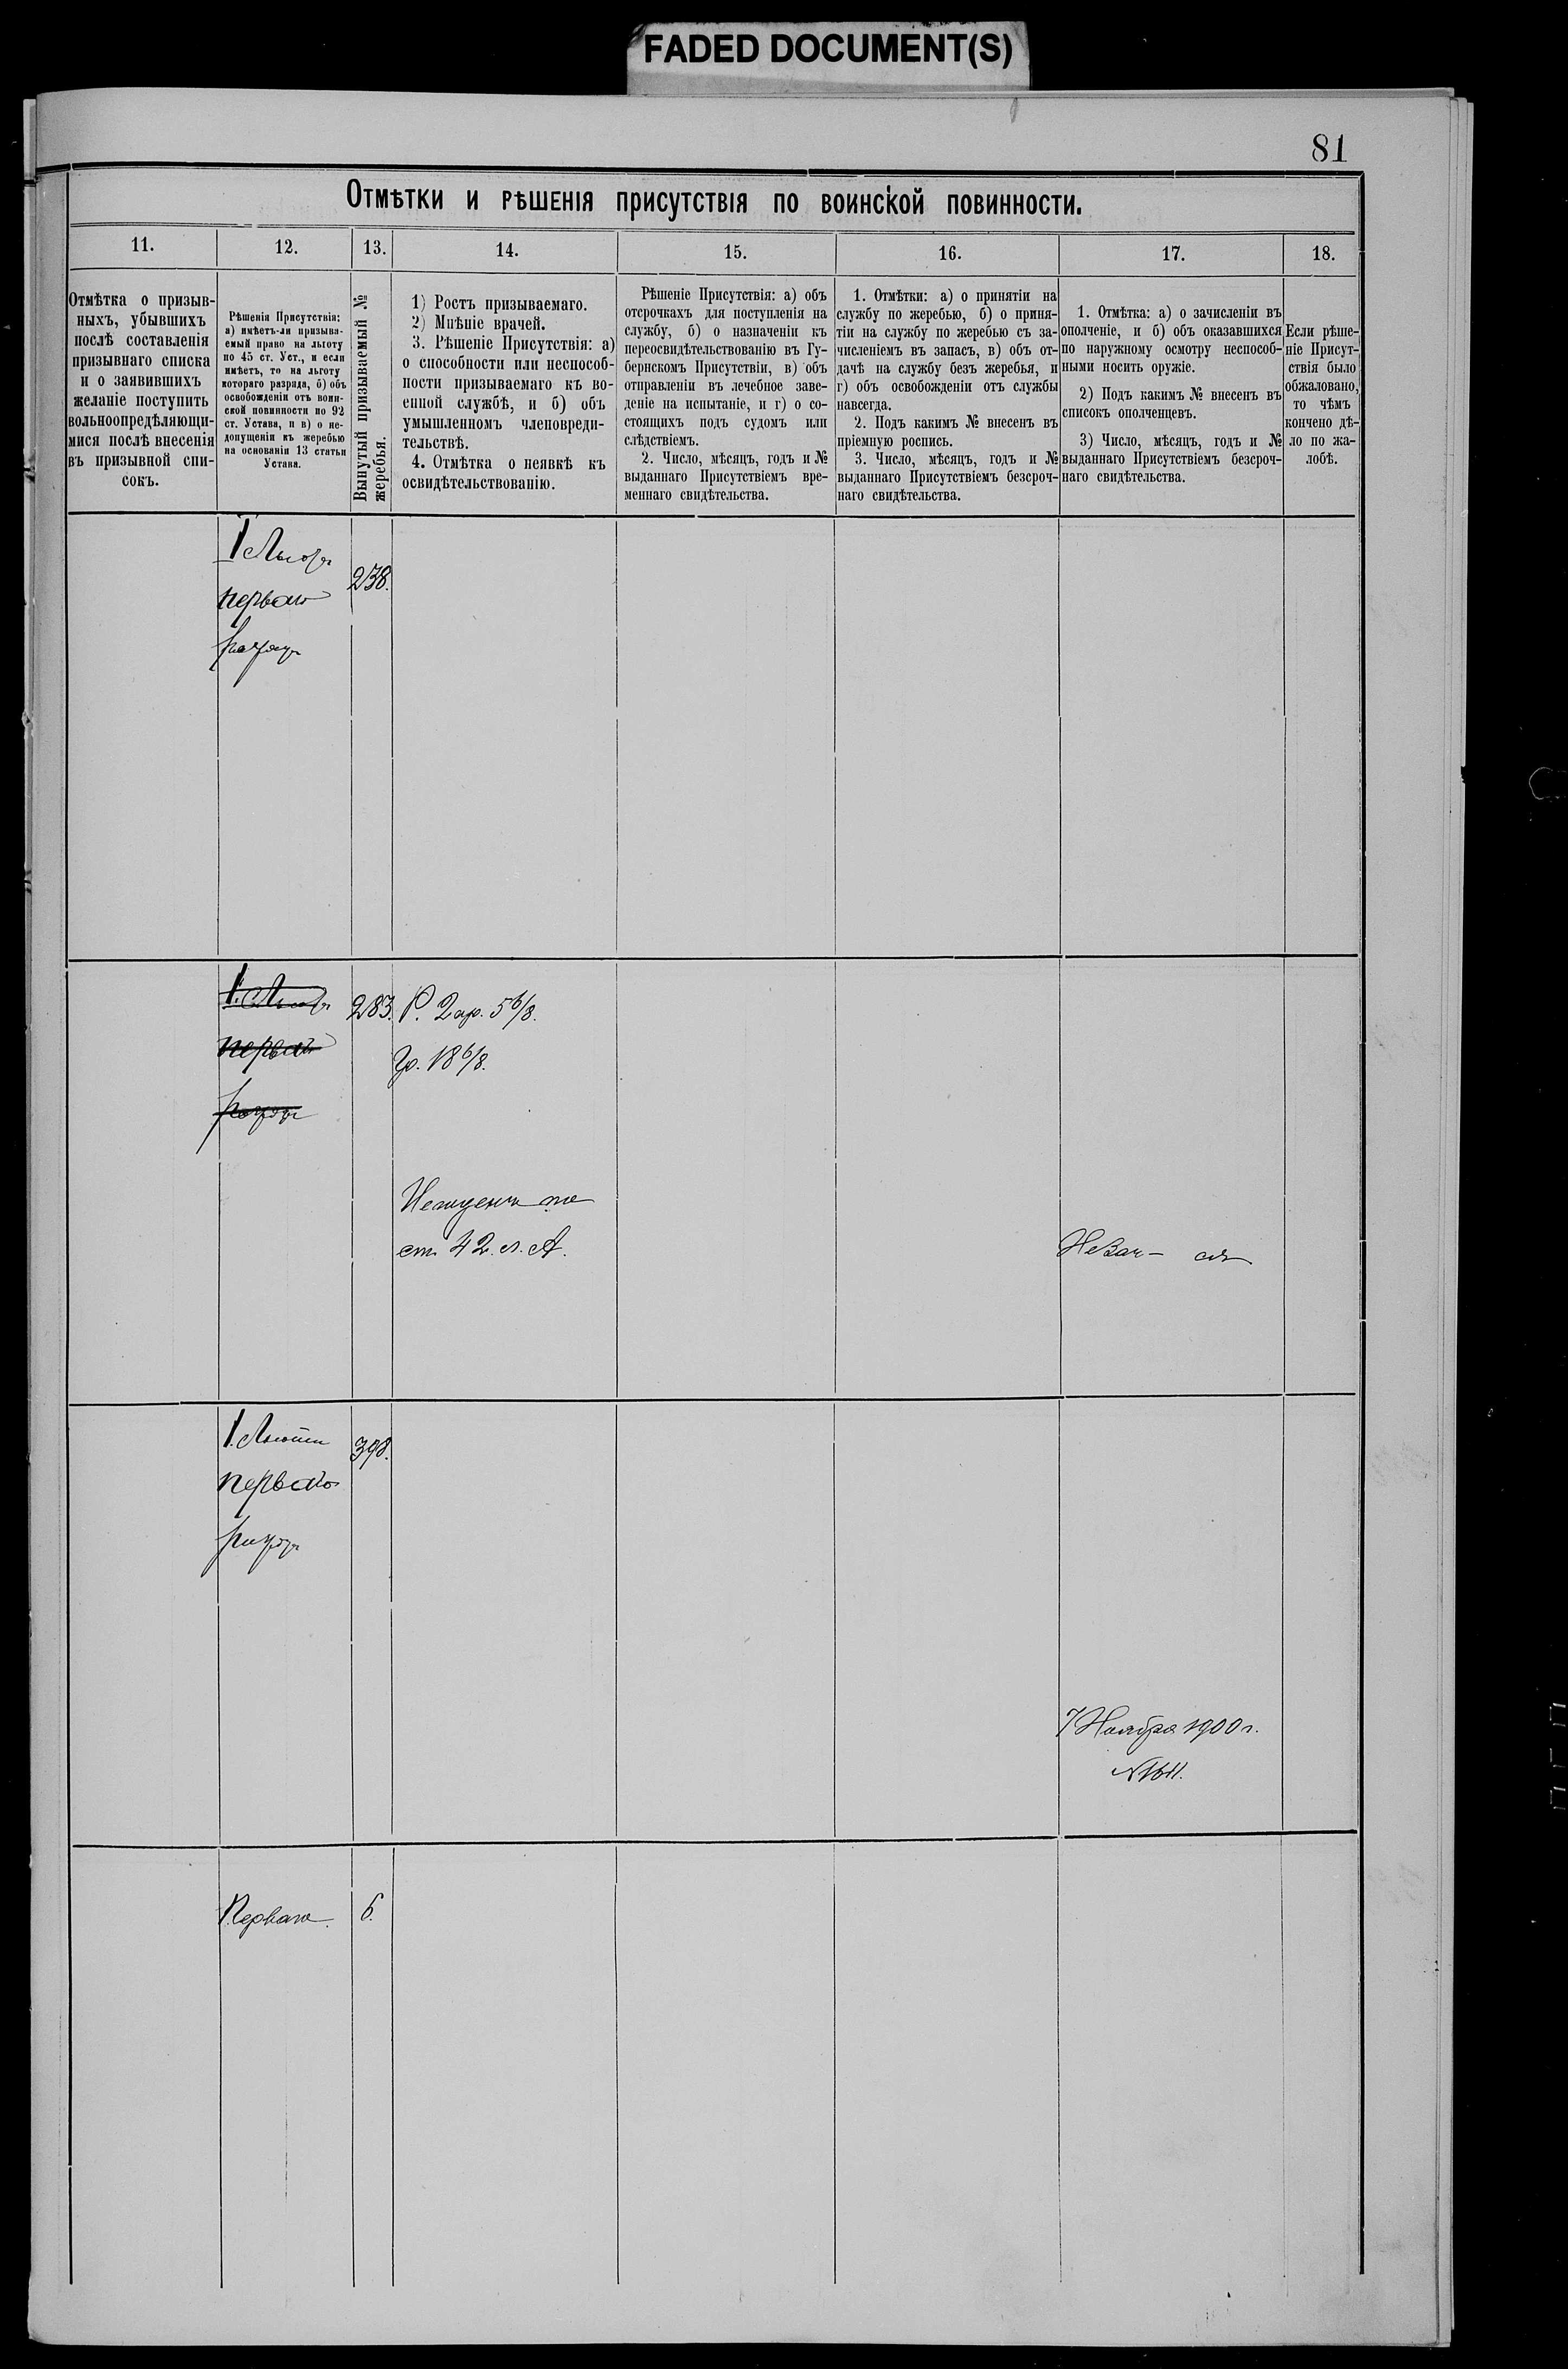 FADED DOCUMENT(S)
81
Отмѣтки и рѣшенія присутствія по воинской повинности.
11.
12.
13.
14.
15.
16.
17.
18.
Отмѣтка о призыв-
ныхъ, убывшихъ
послѣ составленія
призывнаго списка
и о заявившихъ
желаніе поступить
вольноопредѣляющи-
мися послѣ внесенія
въ призывной спи-
сокъ.
Рѣшенія Присутствія:
а) имѣетъ-ли призыва-
емый право на льготу
по 45 ст. Уст., и если
имѣетъ, то на льготу
котораго разряда, б) объ
освобожденіи отъ воин-
ской повинности по 92
ст. Устава, и в) о не-
допущеніи къ жеребью
на основаніи 13 статьи
Устава.
Вынутый призываемый №
жеребья.
1) Ростъ призываемаго.
2) Мнѣніе врачей.
3. Рѣшеніе Присутствія: а)
о способности или неспособ-
ности призываемаго къ во-
енной службѣ, и б) объ
умышленномъ членовреди-
тельствѣ.
4. Отмѣтка о неявкѣ къ
освидѣтельствованію.
Рѣшеніе Присутствія: а) объ
отсрочкахъ для поступленія на
службу, б) о назначеніи къ
переосвидѣтельствованію въ Гу-
бернскомъ Присутствіи, в) объ
отправленіи въ лечебное заве-
деніе на испытаніе, и г) о со-
стоящихъ подъ судомъ или
слѣдствіемъ.
2. Число, мѣсяцъ, годъ и №
выданнаго Присутствіемъ вре-
меннаго свидѣтельства.
1. Отмѣтки: а) о принятіи на
службу по жеребью, б) о приня-
тіи на службу по жеребью съ за-
численіемъ въ запасъ, в) объ от-
дачѣ на службу безъ жеребья, и
г) объ освобожденіи отъ службы
навсегда.
2. Подъ какимъ № внесенъ въ
пріемную роспись.
3. Число, мѣсяцъ, годъ и №
выданнаго Присутствіемъ безсроч-
наго свидѣтельства.
1. Отмѣтка: а) о зачисленіи въ
ополченіе, и б) объ оказавшихся
по наружному осмотру неспособ-
ными носить оружіе.
2) Подъ какимъ № внесенъ въ
списокъ ополченцевъ.
3) Число, мѣсяцъ, годъ и №
выданнаго Присутствіемъ безсроч-
наго свидѣтельства.
Если рѣше-
ніе Присут-
ствія было
обжаловано,
то чѣмъ
кончено дѣ-
ло по жа-
лобѣ.
238.
перваго
283.
Р. 2 ар. 5 6/8.
Гр. 18 6/8.
перваго
ст. 42. л. А.
398.
перваго
7 Ноября 1900 г.
№ 1611.
Перваго.
6.